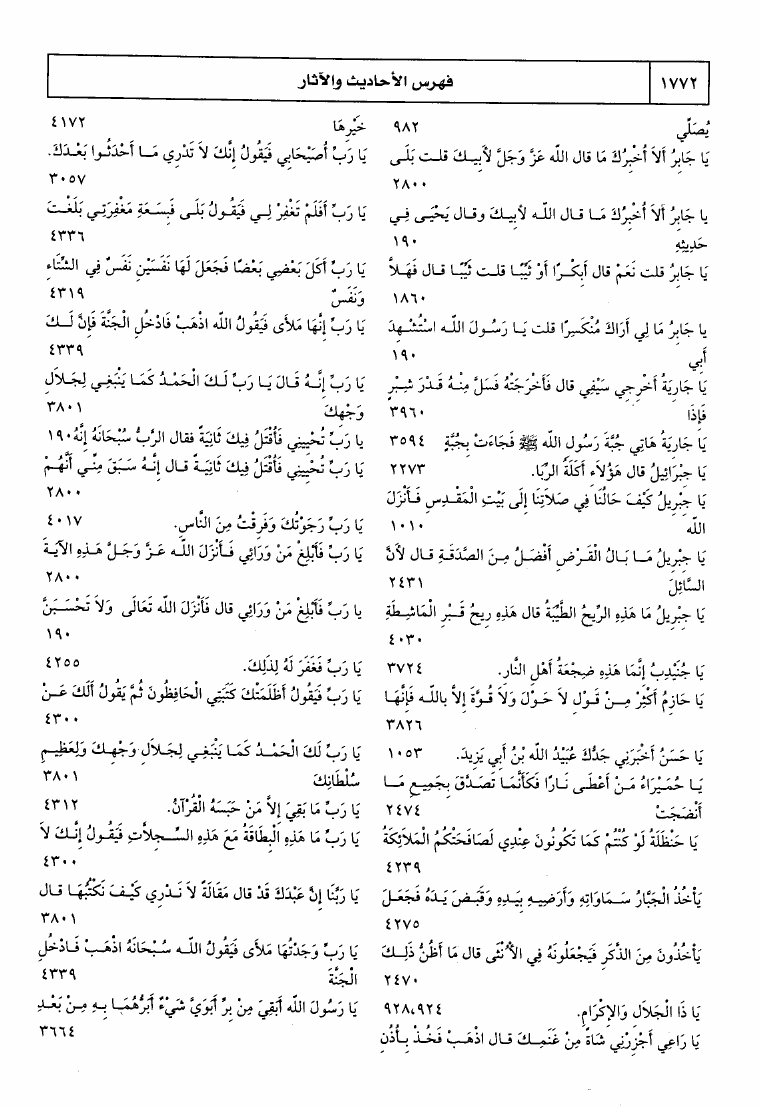 ١٧٧٢
فهرس الأحاديث والآثار
يُصَلِّي ٩٨٢
يَا جَابِرُ أَلاَ أُخْبِرُكَ مَا قال اللّه عَزَّ وَجَلَّ لأَبِيكَ قلت بَلَى
٢٨٠٠
يا جَابِرُ أَلاَ أُخْبِرُكَ مَا قال اللّه لأبيكَ وقال يَحْيَى فِي
حَدِيثِهِ ١٩٠
يَا جَابِرُ قلت نَعَمْ قال أَبِكْرًا أَوْ ثَيِّبًا قلت ثَيِّبًا قال فَهَلاَّ
١٨٦٠
يا جَابِرُ مَا لِي أَرَاكَ مُنْكَسِرًا قلت يَا رَسُولَ اللّه اسْتُشْهِدَ
أَبِي ١٩٠
يَا جَارِيَةُ أَخْرِجِي سَيْفِي قال فَأَخْرَجَتْهُ فَسَلَّ مِنْهُ قَدْرَ شِبْرٍ
فَإِذَا ٣٩٦٠
يَا جَارِيَةُ هَاتِي جُبَّةَ رَسُولِ اللّه ﷺ فَجَاءَتْ بِجُبَّةٍ ٣٥٩٤
يَا جِبْرَائِيلُ قال هَؤُلاَءِ أَكَلَةُ الرِّبَا. ٢٢٧٣
يَا جِبْرِيلُ كَيْفَ حَالُنَا فِي صَلاَتِنَا إِلَى بَيْتِ الْمَقْدِسِ فَأَنْزَلَ
اللّه ١٠١٠
يَا جِبْرِيلُ مَا بَالُ الْقَرْضِ أَفْضَلُ مِنَ الصَّدَقَةِ قال لأَنَّ
السَّائِلَ ٢٤٣١
يَا جِبْرِيلُ مَا هَذِهِ الرِّيحُ الطَّيِّبَةُ قال هَذِهِ رِيحُ قَبْرِ الْمَاشِطَةِ
٤٠٣٠
يَا جُنَيْدِبُ إِنَّمَا هَذِهِ ضِجْعَةُ أَهْلِ النَّارِ. ٣٧٢٤
يَا حَازِمُ أَكْثِرْ مِنْ قَوْلِ لاَ حَوْلَ وَلاَ قُوَّةَ إِلاَّ باللّه فَإِنَّهَا
٣٨٢٦
يَا حَسَنُ أَخْبَرَنِي جَدُّكَ عُبَيْدُ اللّه بْنُ أَبِي يَزِيدَ. ١٠٥٣
يَا حُمَيْرَاءُ مَنْ أَعْطَى نَارًا فَكَأَنَّمَا تَصَدَّقَ بِجَمِيعِ مَا
أَنْضَجَتْ ٢٤٧٤
يَا حَنْظَلَةُ لَوْ كُنْتُمْ كَمَا تَكُونُونَ عِنْدِي لَصَافَحَتْكُمُ الْمَلاَئِكَةُ
٤٢٣٩
يَأْخُذُ الْجَبَّارُ سَمَاوَاتِهِ وَأَرَضِيهِ بِيَدِهِ وَقَبَضَ يَدَهُ فَجَعَلَ
٤٢٧٥
يَأْخُذُونَ مِنَ الذَّكَرِ فَيَجْعَلُونَهُ فِي الأُنْثَى قال مَا أَظُنُّ ذَلِكَ
٢٤٧٠
يَا ذَا الْجَلاَلِ وَالإِكْرَامِ. ٩٢٨،٩٢٤
يَا رَاعِي أَجْزِرْنِي شَاةً مِنْ غَنَمِكَ قال اذْهَبْ فَخُذْ بِأُذُنِ
خَيْرِهَا ٤١٧٢
يَا رَبِّ أُصَيْحَابِي فَيَقُولُ إِنَّكَ لاَ تَدْرِي مَا أَحْدَثُوا بَعْدَكَ.
٣٠٥٧
يَا رَبِّ أَفَلَمْ تَغْفِرْ لِي فَيَقُولُ بَلَى فَبِسَعَةِ مَغْفِرَتِي بَلَغْتَ
٤٣٣٦
يَا رَبِّ أَكَلَ بَعْضِي بَعْضًا فَجَعَلَ لَهَا نَفَسَيْنِ نَفَسٌ فِي الشِّتَاءِ
وَنَفَسٌ ٤٣١٩
يَا رَبِّ إِنَّهَا مَلأَى فَيَقُولُ اللّه اذْهَبْ فَادْخُلِ الْجَنَّةَ فَإِنَّ لَكَ
٤٣٣٩
يَا رَبِّ إِنَّهُ قَالَ يَا رَبِّ لَكَ الْحَمْدُ كَمَا يَنْبَغِي لِجَلاَلِ
وَجْهِكَ ٣٨٠١
يا رَبِّ تُحْيِينِي فَأُقْتَلُ فِيكَ ثَانِيَةً فقال الرَّبُّ سُبْحَانَهُ إِنَّهُ ١٩٠
يَا رَبِّ تُحْيِينِي فَأُقْتَلُ فِيكَ ثَانِيَةً قال إِنَّهُ سَبَقَ مِنِّي أَنَّهُمْ
٢٨٠٠
يَا رَبِّ رَجَوْتُكَ وَفَرِقْتُ مِنَ النَّاسِ. ٤٠١٧
يَا رَبِّ فَأَبْلِغْ مَنْ وَرَائِي فَأَنْزَلَ اللّه عَزَّ وَجَلَّ هَذِهِ الآيَةَ
٢٨٠٠
يا رَبِّ فَأَبْلِغْ مَنْ وَرَائِي قال فَأَنْزَلَ اللّه تَعَالَى وَلاَ تَحْسَبَنَّ
١٩٠
يَا رَبِّ فَغَفَرَ لَهُ لِذَلِكَ. ٤٢٥٥
يَا رَبِّ فَيَقُولُ أَظَلَمَتْكَ كَتَبَتِي الْحَافِظُونَ ثُمَّ يَقُولُ أَلَكَ عَنْ
٤٣٠٠
يَا رَبِّ لَكَ الْحَمْدُ كَمَا يَنْبَغِي لِجَلاَلِ وَجْهِكَ وَلِعَظِيمِ
سُلْطَانِكَ ٣٨٠١
يَا رَبِّ مَا بَقِيَ إِلاَّ مَنْ حَبَسَهُ الْقُرْآنُ. ٤٣١٢
يَا رَبِّ مَا هَذِهِ الْبِطَاقَةُ مَعَ هَذِهِ السِّجِلاَّتِ فَيَقُولُ إِنَّكَ لاَ
٤٣٠٠
يَا رَبَّنَا إِنَّ عَبْدَكَ قَدْ قال مَقَالَةً لاَ نَدْرِي كَيْفَ نَكْتُبُهَا قال
٣٨٠١
يَا رَبِّ وَجَدْتُهَا مَلأَى فَيَقُولُ اللّه سُبْحَانَهُ اذْهَبْ فَادْخُلِ
الْجَنَّةَ ٤٣٣٩
يَا رَسُولَ اللّه أَبَقِيَ مِنْ بِرِّ أَبَوَيَّ شَيْءٌ أَبَرُّهُمَا بِهِ مِنْ بَعْدِ
٣٦٦٤